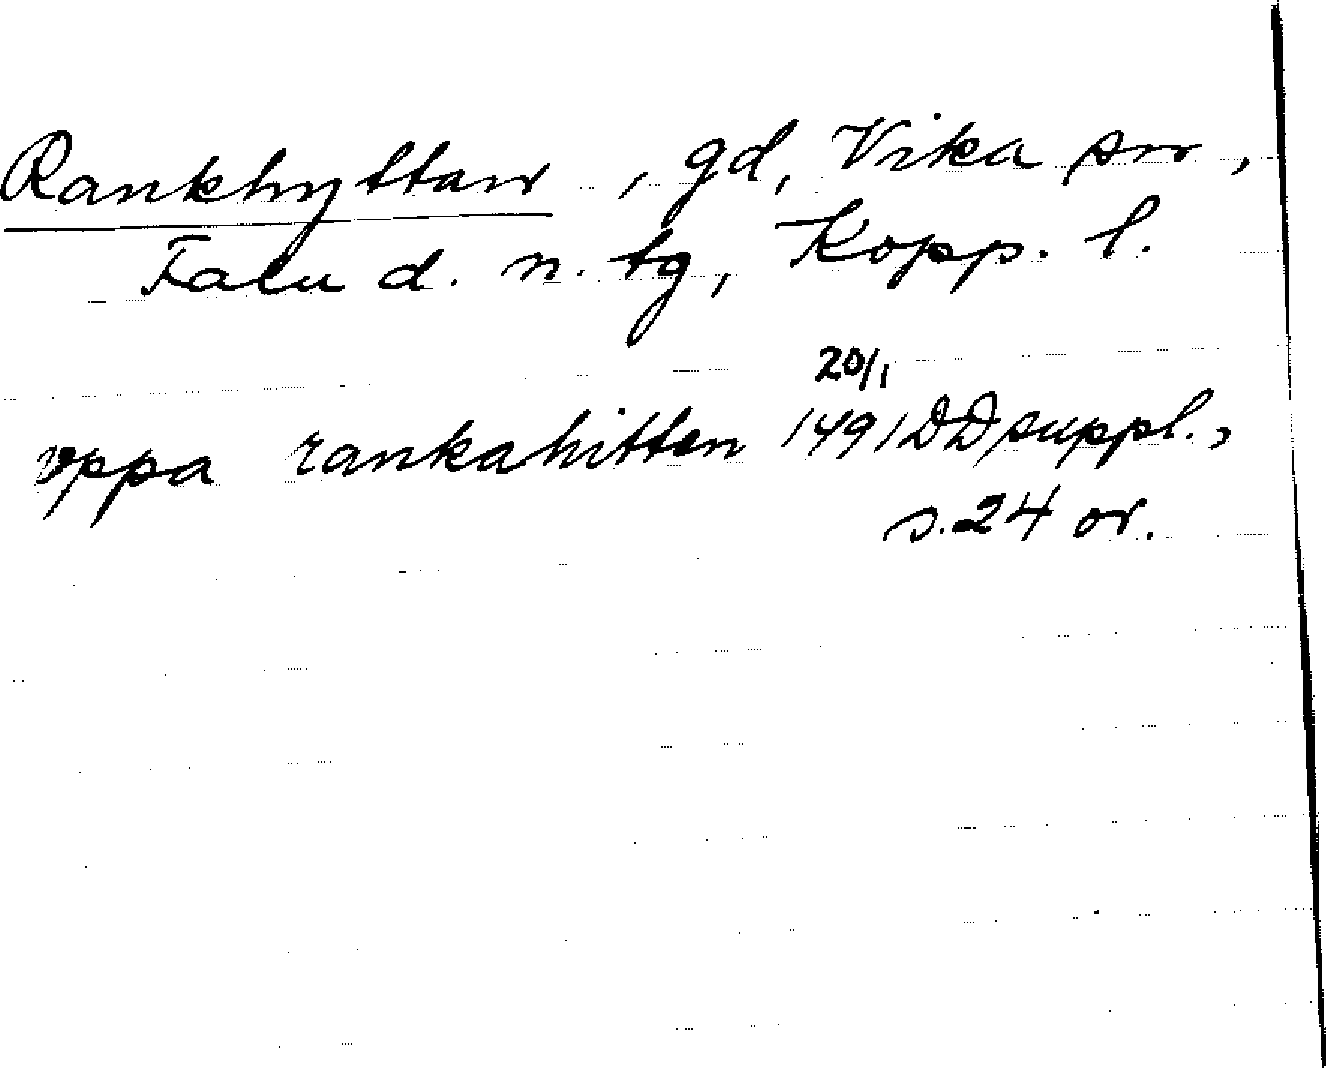 Rankhyttan, gd, Vika sn,
Falu d. n. tg, Kopp. l.
20/1
vppa rankahitten 1491 DD suppl.,
s. 24 or.